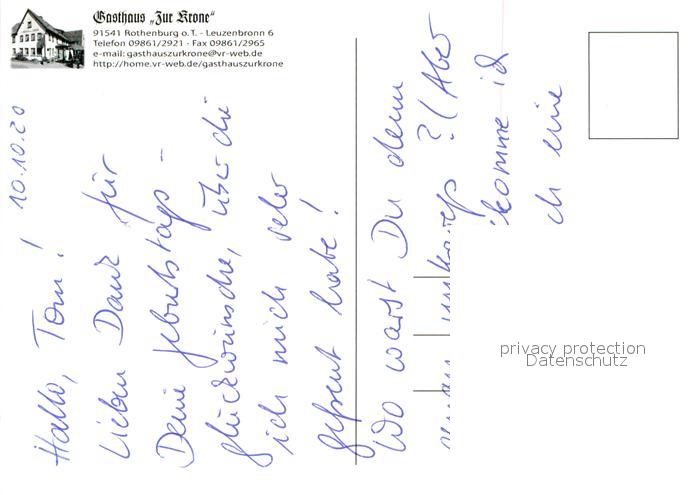 Gasthaus „Zur Krone“
91541 Rothenburg o.T. - Leuzenbronn 6
Telefon 09861/2921 - Fax 09861/2965
e-mail: gasthauszurkrone@vr-web.de
http://home.vr-web.de/gasthauszurkrone
10.10.20
Hallo, Tom!
Lieben Dank für
Deine Geburtstags-
glückwünsche, über die
ich mich sehr
gefreut habe!
Wo warst Du denn
?(Aber
komme ich
ch eine
privacy protection
Datenschutz